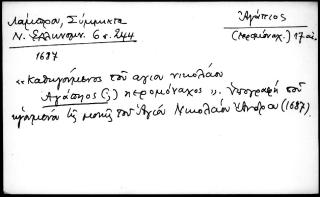 Λάμπρου, Σύμμικτα
Ν. Ἑλληνομν. 6 σ. 244
1687
Ἀγάπιος
(ἱερομόναχ.) 17 αἰ.
«Καθηγούμενος τοῦ ἁγίου Νικολάου
Ἀγάπιος (;) ἱερομόναχος». Ὑπογραφὴ τοῦ
ἡγουμένου τῆς μονῆς τοῦ Ἁγίου Νικολάου Ἄνδρου (1687).